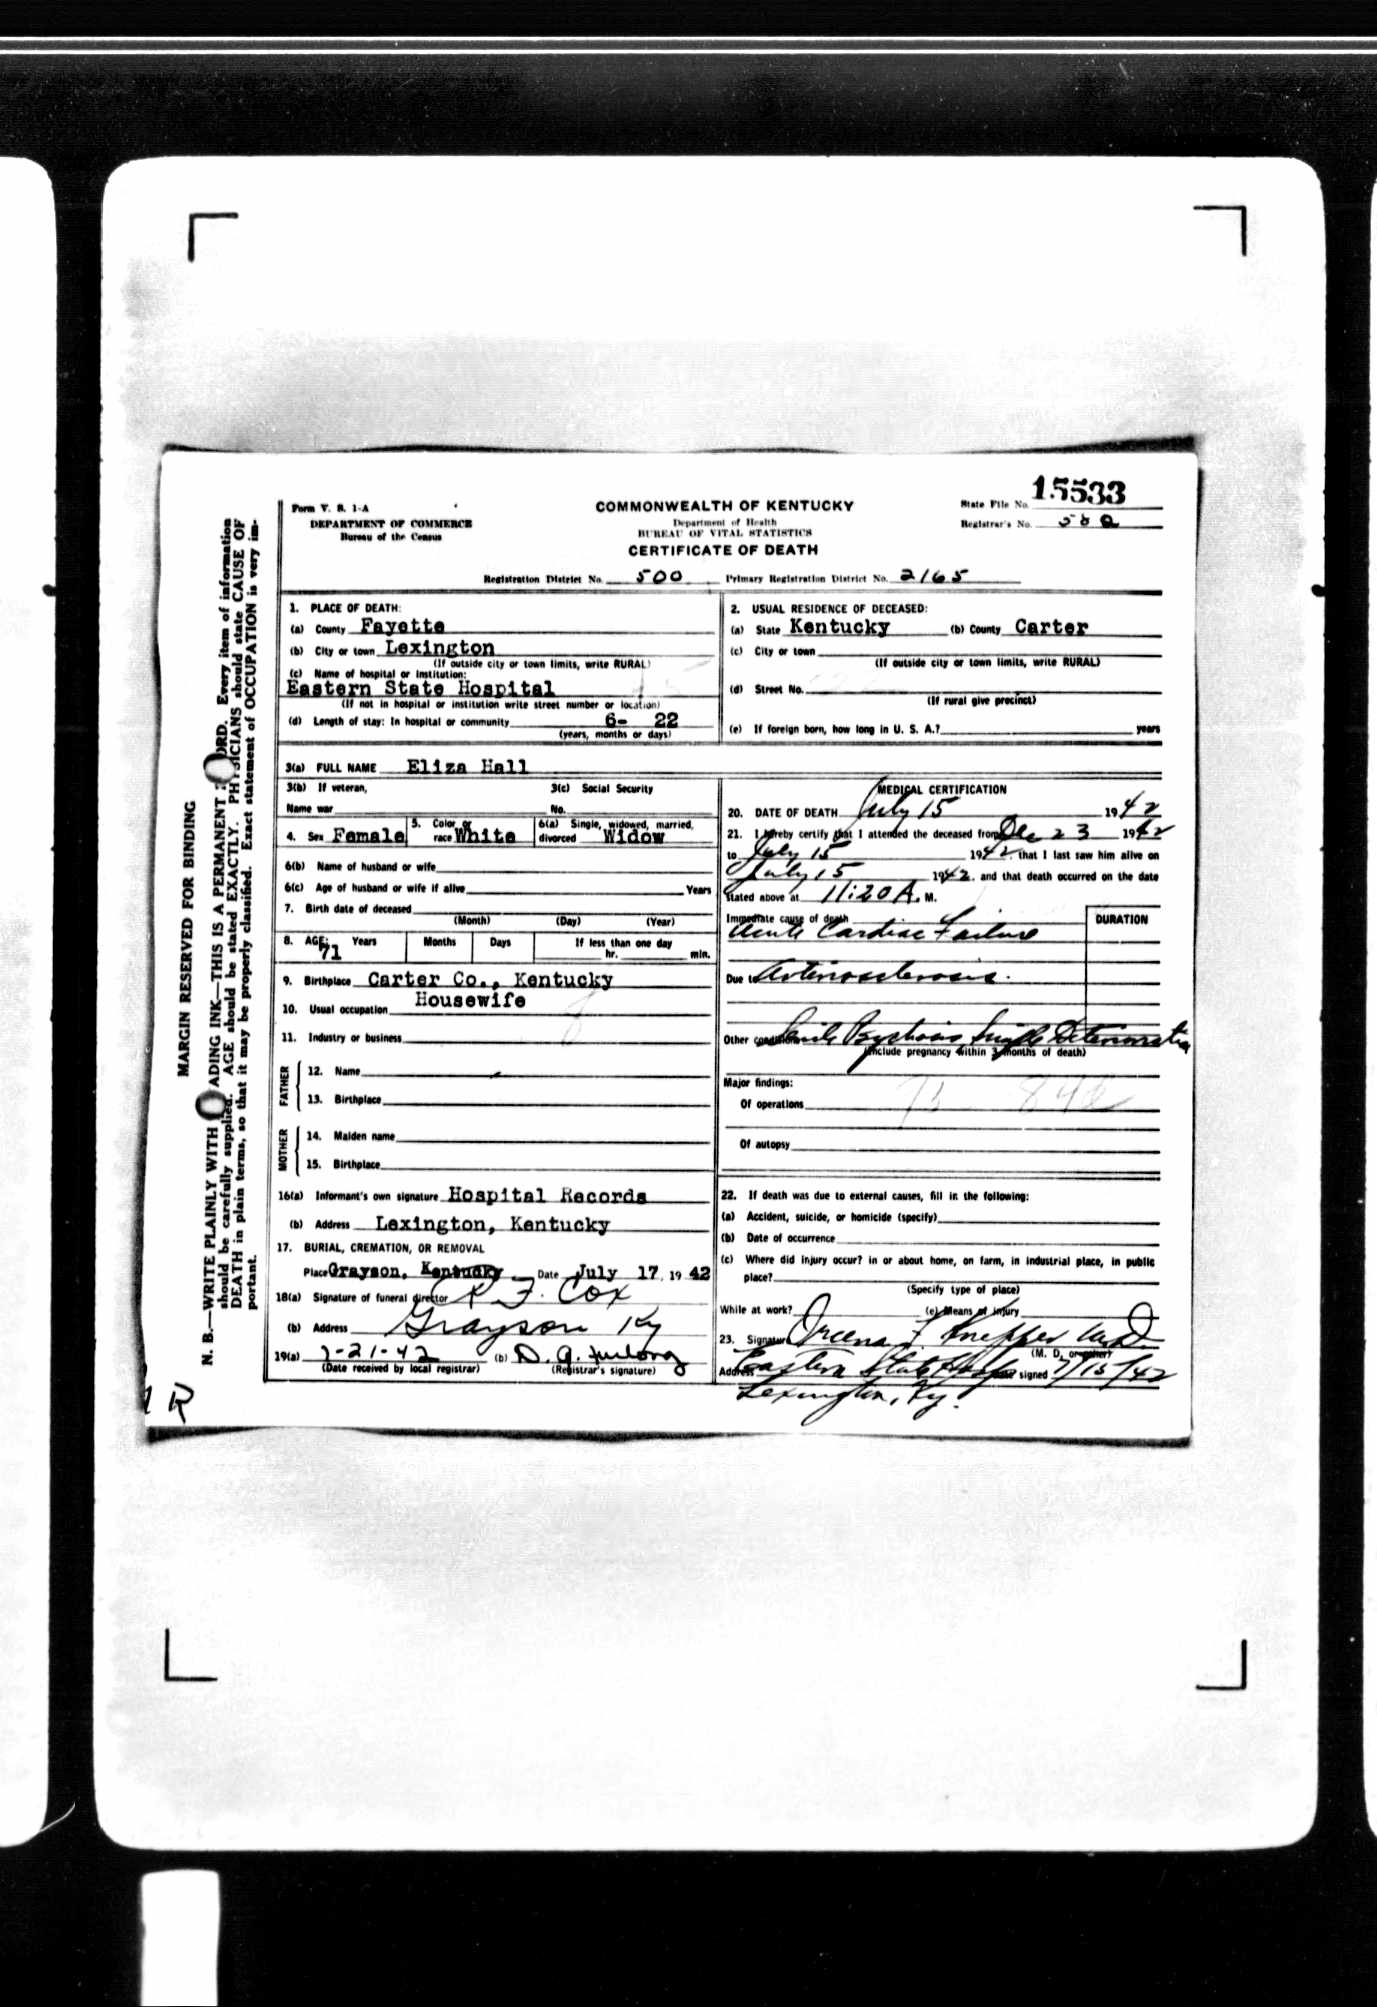 15533
Form V. S. 1-A
COMMONWEALTH OF KENTUCKY
State File No.
DEPARTMENT OF COMMERCE
Department of Health
Registrar's No.
Bureau of the Census
BUREAU OF VITAL STATISTICS
CERTIFICATE OF DEATH
Registration District No. 500 Primary Registration District No. 2165
MARGIN RESERVED FOR BINDING
N. B.—WRITE PLAINLY WITH ADING INK—THIS IS A PERMANENT ORD. Every item of information
should be carefully supplied. AGE should be stated EXACTLY. PHYSICIANS should state CAUSE OF
DEATH in plain terms, so that it may be properly classified. Exact statement of OCCUPATION is very im-
portant.
1. PLACE OF DEATH:
(a) County Fayette
(b) City or town Lexington
(If outside city or town limits, write RURAL)
(c) Name of hospital or institution:
Eastern State Hospital
(If not in hospital or institution write street number or location)
(d) Length of stay: In hospital or community 6- 22
(years, months or days)
2. USUAL RESIDENCE OF DECEASED:
(a) State Kentucky (b) County Carter
(c) City or town
(If outside city or town limits, write RURAL)
(d) Street No.
(If rural give precinct)
(e) If foreign born, how long in U. S. A.? years
3(a) FULL NAME Eliza Hall
3(b) If veteran, 3(c) Social Security
Name war No.
4. Sex Female 5. Color or race White 6(a) Single, widowed, married, divorced Widow
6(b) Name of husband or wife
6(c) Age of husband or wife if alive Years
7. Birth date of deceased
(Month) (Day) (Year)
8. AGE: Years Months Days If less than one day
71 hr. min.
9. Birthplace Carter Co., Kentucky
10. Usual occupation Housewife
11. Industry or business
FATHER
12. Name
13. Birthplace
MOTHER
14. Maiden name
15. Birthplace
16(a) Informant's own signature Hospital Records
(b) Address Lexington, Kentucky
17. BURIAL, CREMATION, OR REMOVAL
Place Grayson, Kentucky Date July 17, 19 42
18(a) Signature of funeral director R F. Cox
(b) Address Grayson Ky
19(a) 7-21-42 (b) D. A. Furlong
(Date received by local registrar) (Registrar's signature)
MEDICAL CERTIFICATION
20. DATE OF DEATH July 15 1942
21. I hereby certify that I attended the deceased from Dec 23 19
to July 15 1942, that I last saw him alive on
July 15 1942, and that death occurred on the date
stated above at 11:20 A. M.
Immediate cause of death DURATION
Acute Cardiac Failure
Due to Arteriosclerosis.
Other conditions Senile Psychosis, Simple Deterioration
(Include pregnancy within 3 months of death)
Major findings:
Of operations
Of autopsy
22. If death was due to external causes, fill in the following:
(a) Accident, suicide, or homicide (specify)
(b) Date of occurrence
(c) Where did injury occur? in or about home, on farm, in industrial place, in public
place?
(Specify type of place)
While at work? (e) Means of injury
23. Signature Knepper M.D.
(M. D. or other)
Address Eastern State Hosp signed 7/15/42
Lexington, Ky.
R